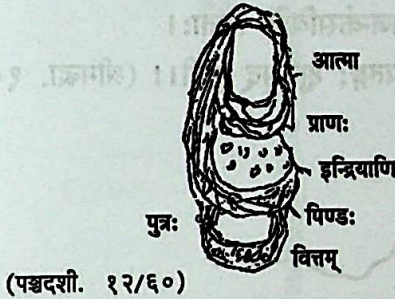 आत्मा
प्राणः
इन्द्रियाणि
पिण्डः
पुत्रः
वित्तम्
(पञ्चदशी. १२/६०)